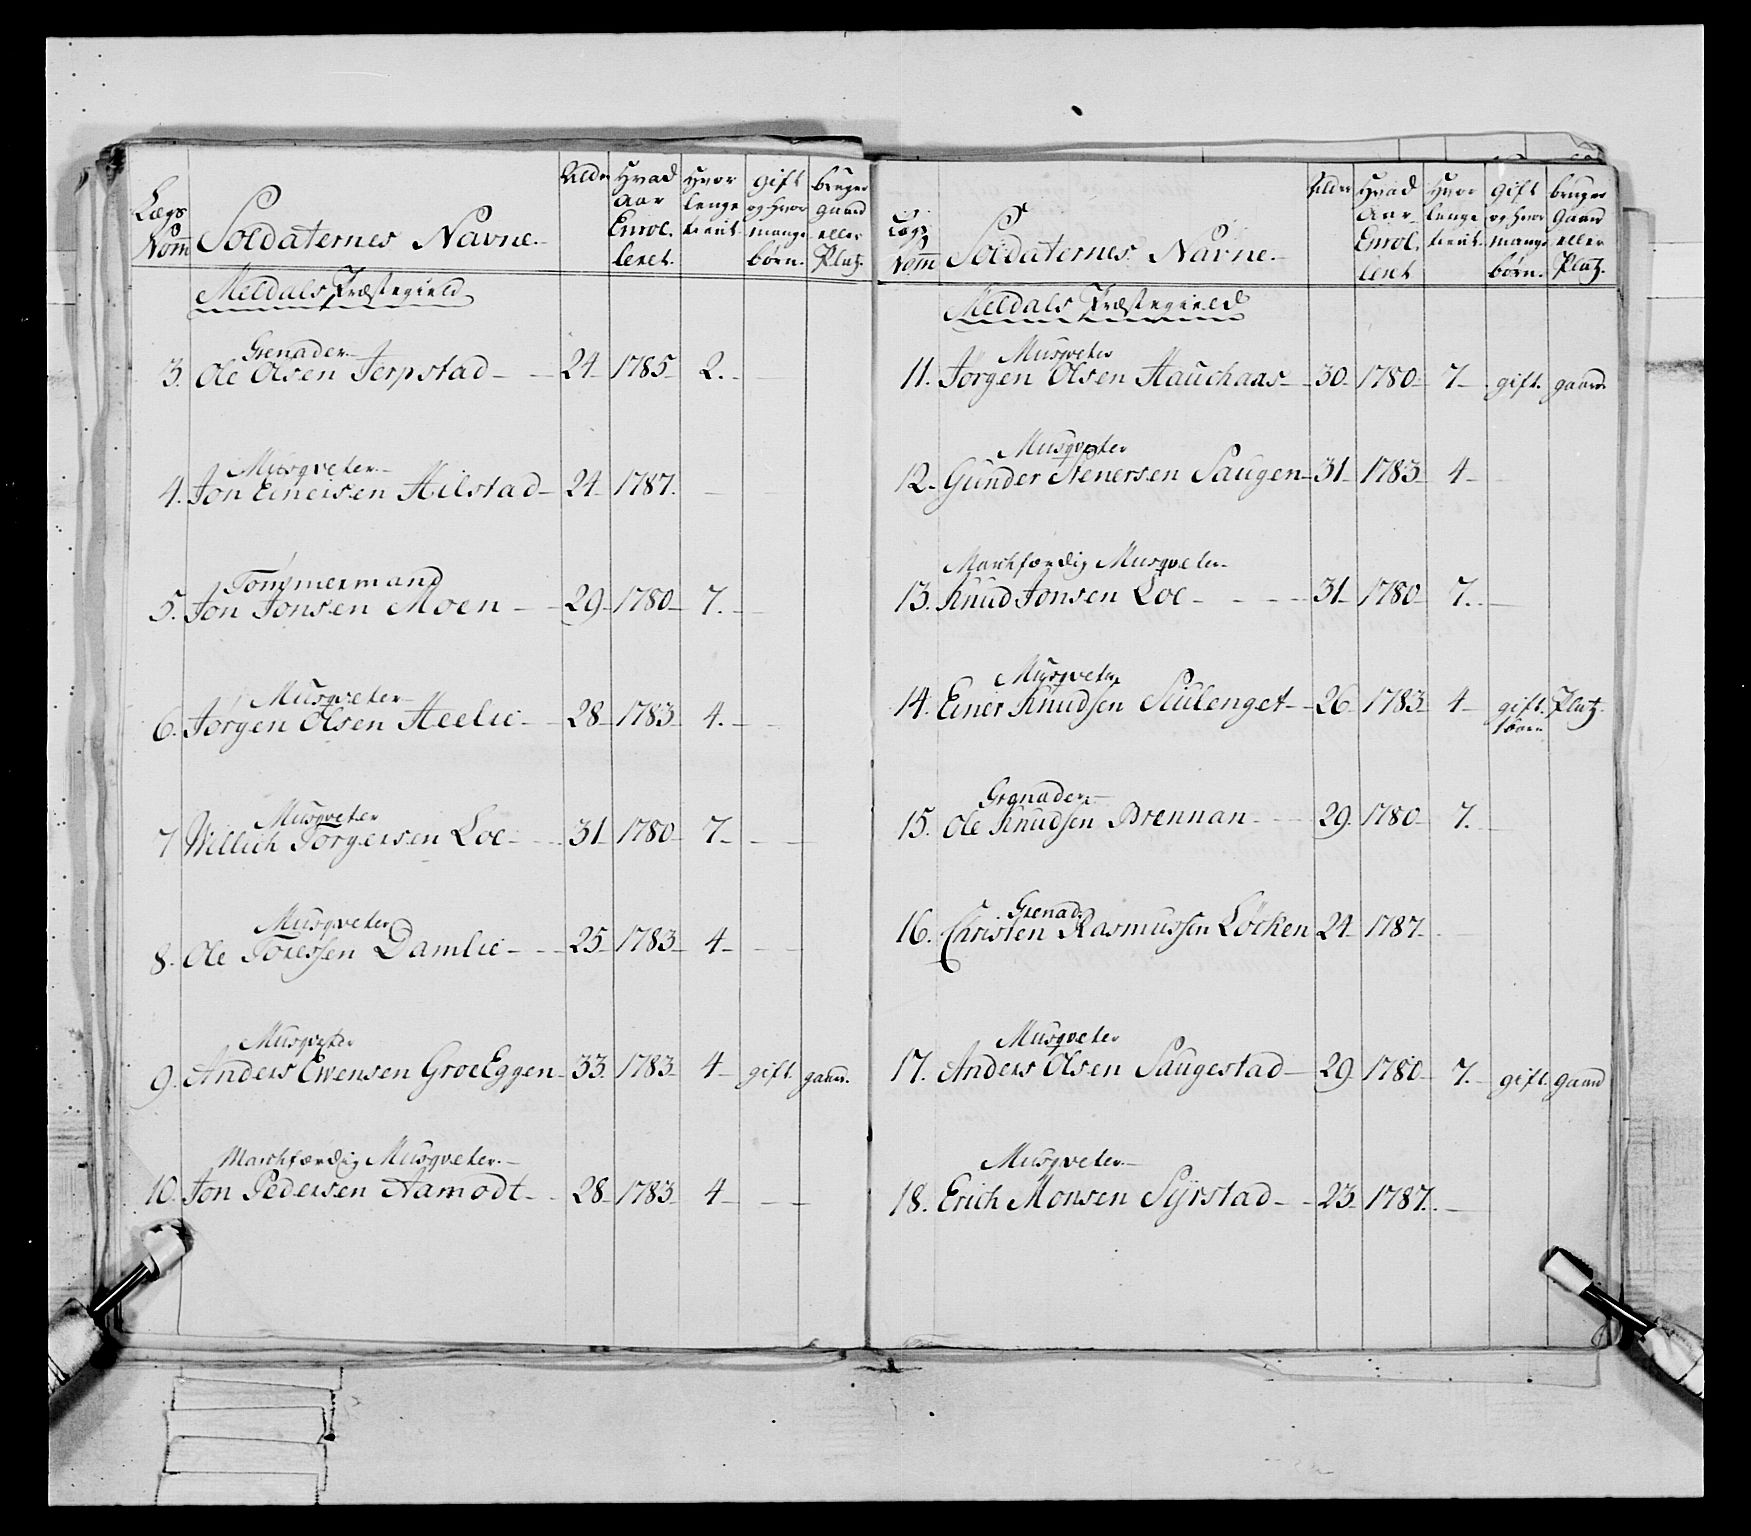 Lægs Nom̄ | Soldaternes Navne. | Alder | Hvad Aar Enrol. leret. | Hvor lenge tient | gift og hvor mange børn. | bruger gaard eller Platz.
Meldals Præstegield
Grenader
3. Ole Olsen Jerpstad 24 1785 2.
Musqveter
4. Jon Eineisen Hilstad 24 1787.
Tømmermand
5. Jon Jonsen Moen 29 1780 7.
Musqveter
6. Jørgen Olsen Heelie 28 1783 4.
Musqveter
7 Willich Torgersen Loe 31 1780 7
Musqveter
8. Ole Toressen Damlie 25 1783 4
Musqveter
9. Anders Ewensen GroeEggen 33 1783 4 gift gaard.
Marchfærdig Musqveter
10. Jon Pedersen Aamodt 28 1783 4
Lægs Nom̄ | Soldaternes Navne. | Alder | Hvad Aar Enrol. leret | Hvor lenge tient. | Gift og hvor mange børn. | bruger Gaard eller Platz.
Meldals Præstegield
Musqveter
11. Jørgen Olsen Hauchaas 30 1780 7 gift. gaard
Musqveter
12. Gunder Stenersen Saugen 31 1783 4
Marchfærdig Musqveter
13. Knud Jonsen Loe 31 1780 7.
Musqveter
14. Einer Knudsen Siulenget 26 1783 4 gift. Platz.
1 barn
Grenader
15. Ole Knudsen Brennan 29 1780 7.
Grenad
16. Christen Rasmussen Løcken 24 1787
Musqveter
17. Anders Olsen Saugestad 29 1780 7. gift. gaard
Musqveter
18. Erich Monsen Syrstad 23 1787.